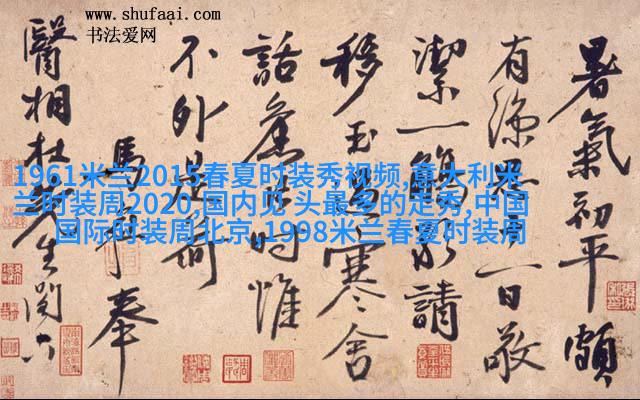 www.shufaai.com
书法爱网
1961米兰2015春夏时装秀视频,意大利米
兰时装周2020,国内见 头最多的走秀,中国
国际时装周北京,1998米兰春夏时装周
暑氣初平頗
有涼一日敬
潔一請
移玉寒舍
話舊時惟
不外是荷
馬奉
醫相杜先生閣下